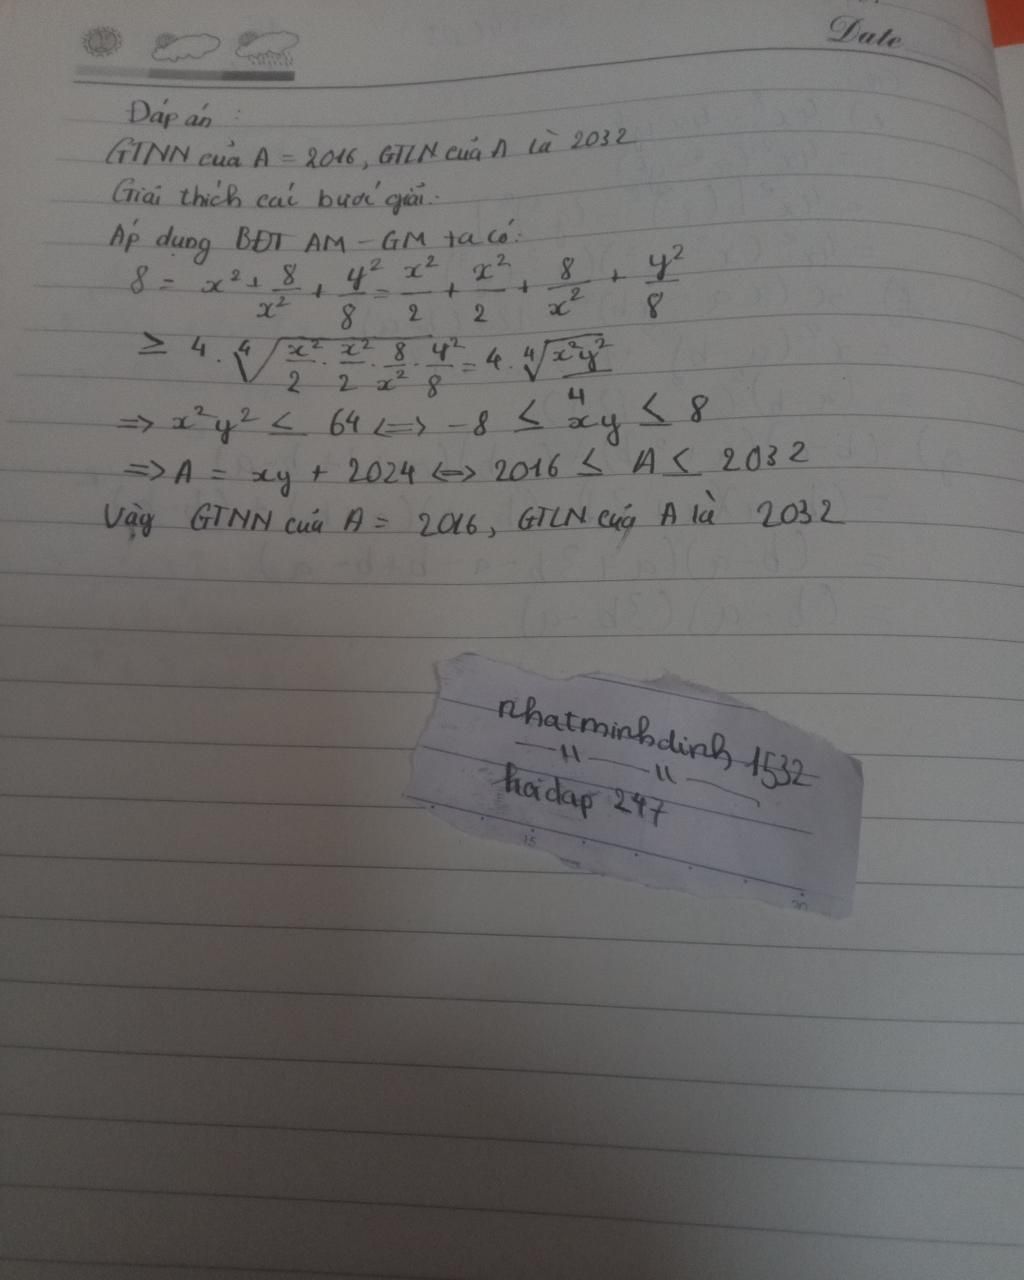 Date
Đáp án :
GTNN của A = 2016, GTLN của A là 2032
Giải thích các bước giải:
Áp dụng BĐT AM - GM ta có:
8 = x² + 8/x² + y²/8 = x²/2 + x²/2 + 8/x² + y²/8
≥ 4 . ⁴√(x²/2 . x²/2 . 8/x² . y²/8) = 4 . ⁴√(x²y²/4)
=> x²y² ≤ 64 <=> -8 ≤ xy ≤ 8
=> A = xy + 2024 <=> 2016 ≤ A ≤ 2032
Vậy GTNN của A = 2016, GTLN của A là 2032
nhatminhdinh 1532
hoidap 247
15
20